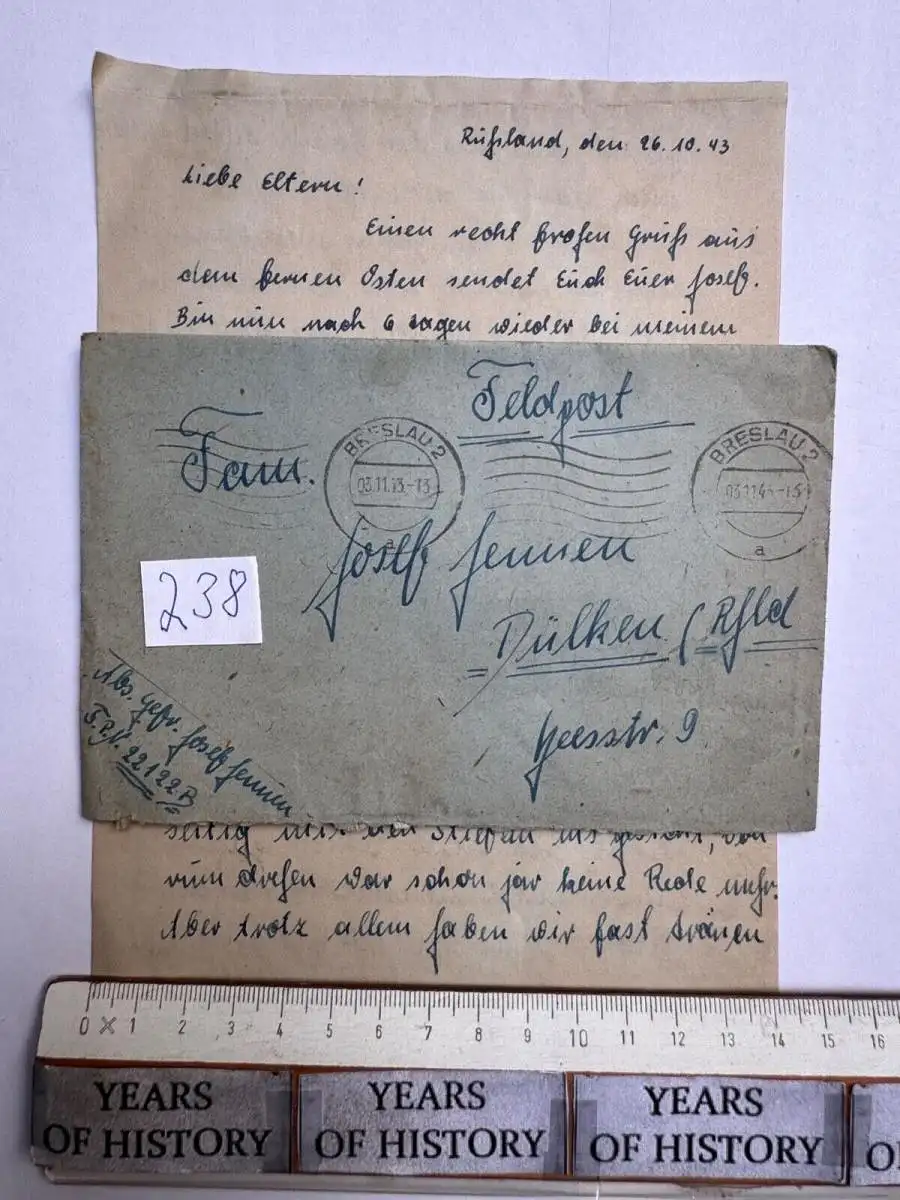 Rußland, den 26.10.43
Liebe Eltern!
Einen recht frohen Gruß aus
dem fernen Osten sendet Euch Euer Josef.
Bin nun nach 6 tagen wieder bei meinem
Feldpost
Fam.
BRESLAU 2
03.11.43.-13
a
BRESLAU 2
03.11.43
a
Josef Jennen
Dülken (Rhld
Heesstr. 9
238
Abs. Gefr. Josef Jennen
F.P.N. 22122B
seitig mit den Stiefeln ins gesicht, von
rum drehen war schon jar keine Rede mehr.
Aber trotz allem haben wir fast tränen
0 1 2 3 4 5 6 7 8 9 10 11 12 13 14 15 16
YEARS OF HISTORY
YEARS OF HISTORY
YEARS OF HISTORY